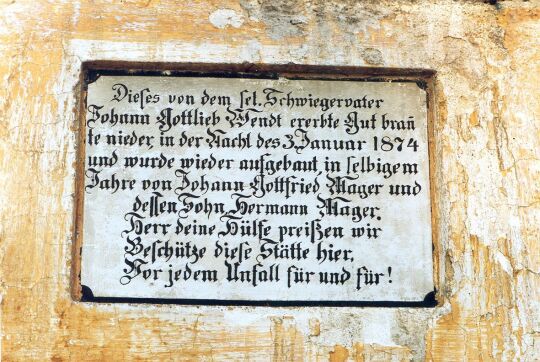 Dieses von dem sel. Schwiegervater
Johann Gottlieb Wendt ererbte Gut bran̄
te nieder, in der Nacht des 3. Januar 1874
und wurde wieder aufgebaut, in selbigem
Jahre von Johann Gottfried Mager und
dessen Sohn, Hermann Mager.
Herr deine Hülfe preißen wir
Beschütze diese Stätte hier.
Vor jedem Unfall für und für!